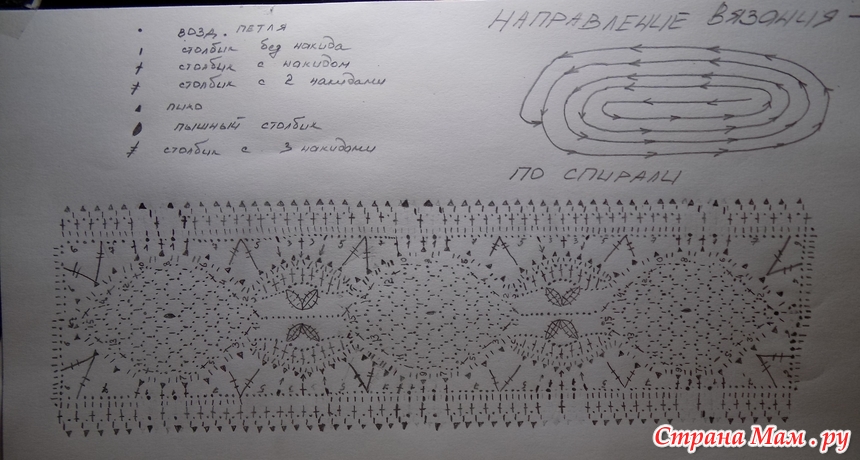 • возд. петля
столбик без накида
столбик с накидом
столбик с 2 накидами
пико
пышный столбик
столбик с 3 накидами
НАПРАВЛЕНИЕ ВЯЗАНИЯ -
ПО СПИРАЛИ
Страна Мам.ру